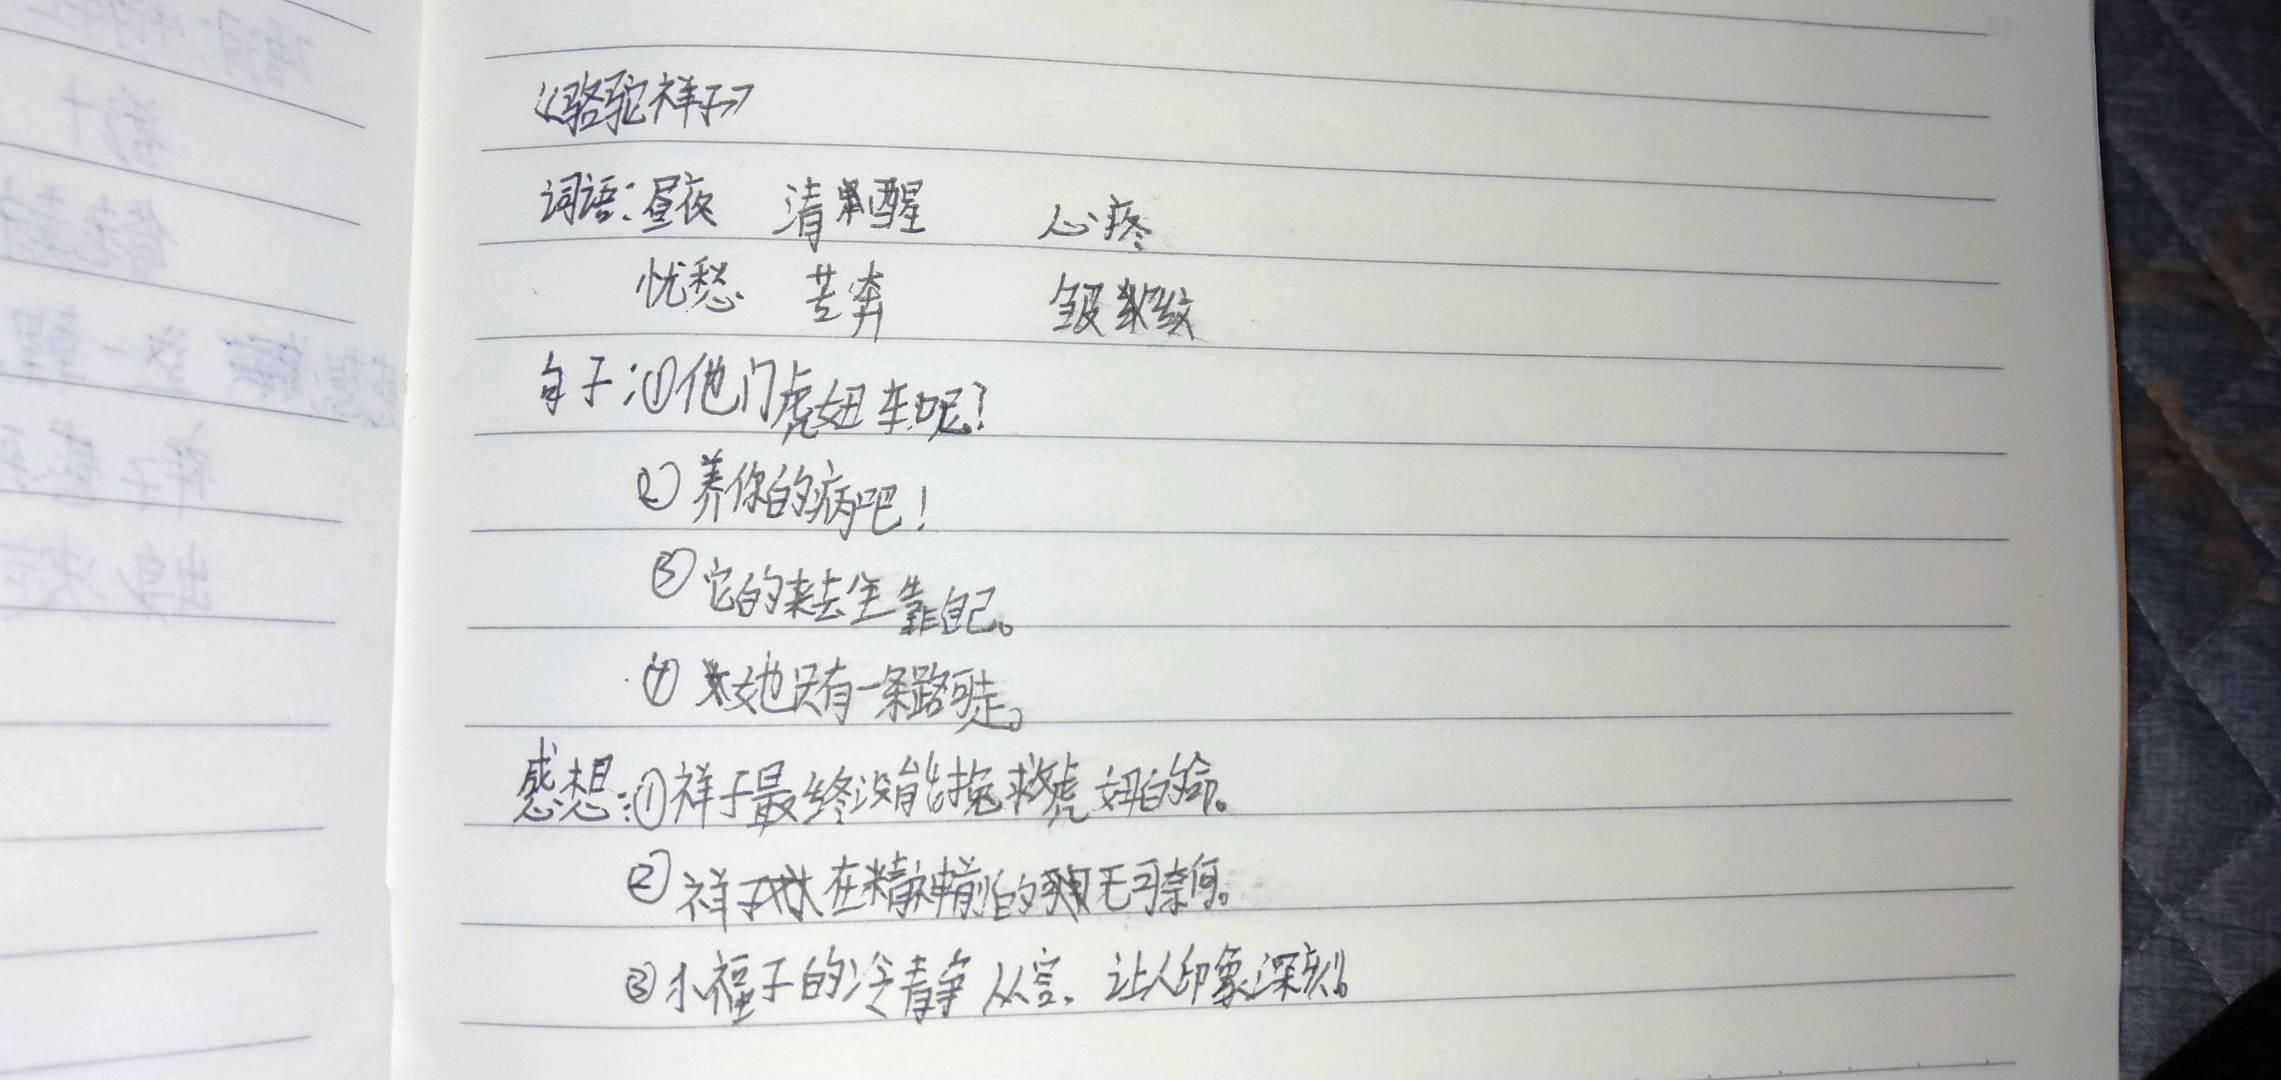 《骆驼祥子》
词语：昼夜 清醒 心疼
忧愁 苦奔 皱纹
句子：①他们虎妞车呢？
②养你的病吧！
③它的来去全靠自己。
④她只有一条路可走。
感想：①祥子最终没能挽救虎妞的命。
②祥子在精神前的毛可奈何。
③小福子的冷静从容，让人印象深刻。